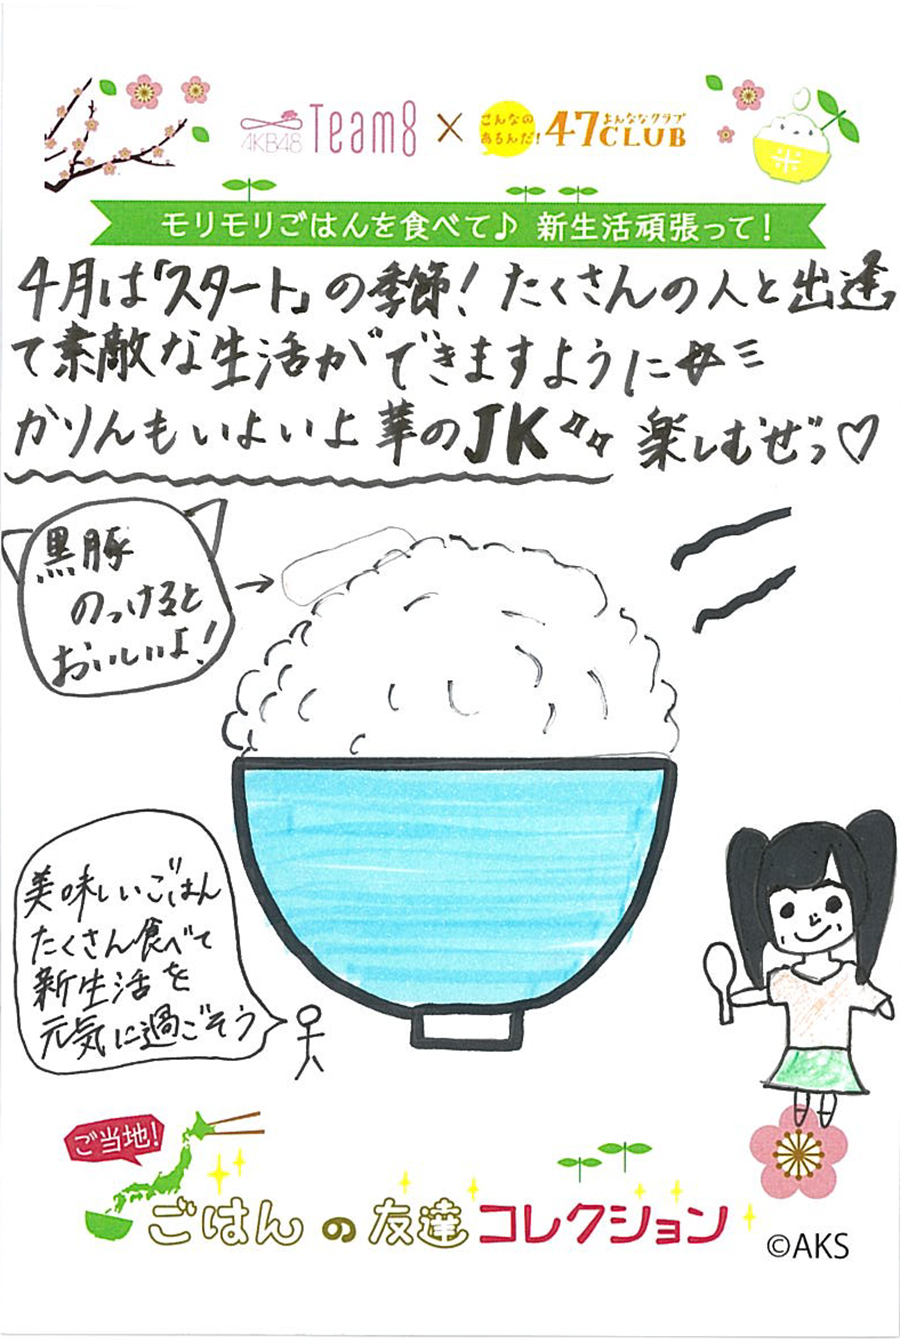 AKB48 Team8 × こんなの あるんだ! 47CLUB よんななクラブ
米
モリモリごはんを食べて♪ 新生活頑張って!
4月は「スタート」の季節! たくさんの人と出逢っ
て素敵な生活ができますように
かりんもいよいよ華のJK 楽しむぜっ♡
黒豚
のっけると
おいしいよ!
美味しいごはん
たくさん食べて
新生活を
元気に過ごそう
ご当地!
ごはんの友達コレクション
©AKS